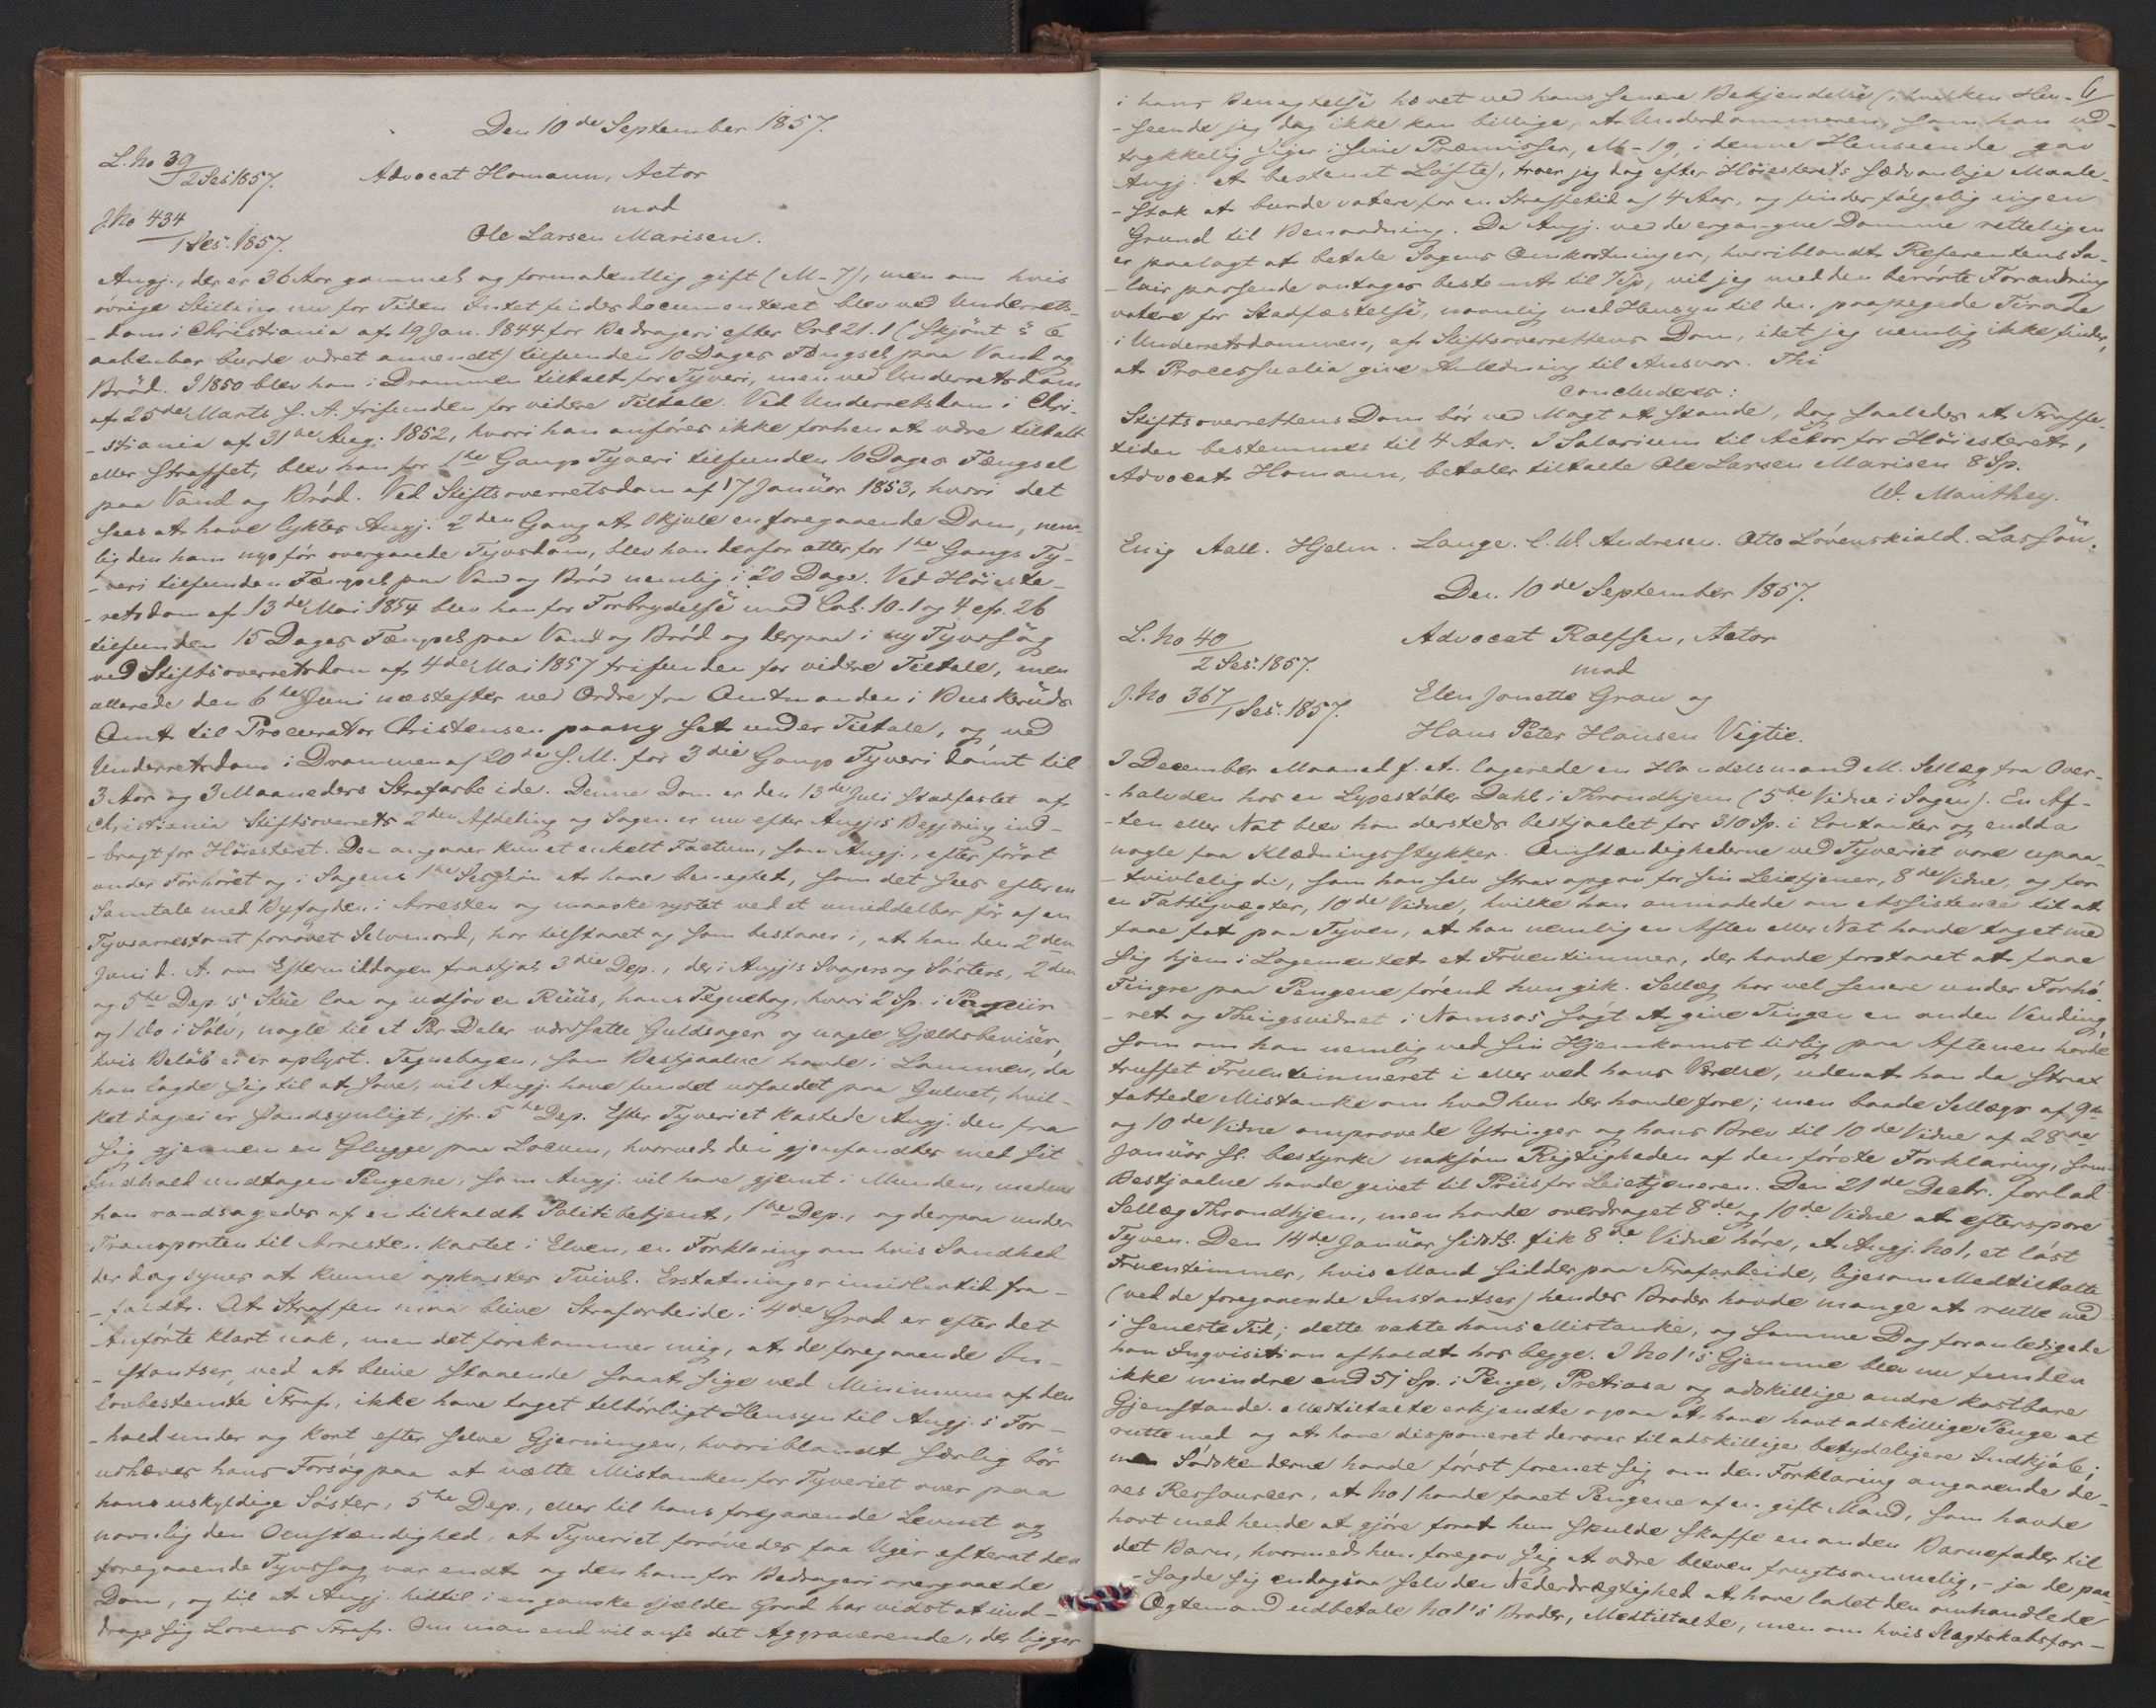 Den 10de September 1857.
L. No 39
2 Ses 1857.
Advocat Homann, Actor
mod
J. No 434
1 Ses. 1857.
Ole Larsen Marisen.
Angj., der er 36 Aar gammel og formodentlig gift (M-7), men om hvis
øvrige Stilling nu for Tiden Intet findes documenteret blev ved Underrets-
-dom i Christiania af 19 Jan. 1844 for Bedrageri efter Crl 21.1 (skjønt § 6
aabenbar burde været anvendt) tilfunden 10 Dages Fængsel paa Vand og
Brød. I 1850 blev han i Drammen tiltalt for Tyveri, men ved Underretsdom
af 25de Marts s. A. frifunden for videre Tiltale. Ved Underretsdom i Chri-
-stiania af 31te Aug. 1852, hvori han anføres ikke forhen at være tiltalt
eller straffet, blev han for 1ste Gangs Tyveri tilfunden 10 Dages Fængsel
paa Vand og Brød. Ved Stiftsoverretsdom af 17 Januar 1853, hvori det
sees at have lyktes Angj. 2den Gang at skjule en foregaaende Dom, nem-
lig den ham nys før overgaaede Tyvsdom, blev han derfor atter for 1ste Gangs Ty-
-veri tilfunden Fængsel paa Vand og Brød nemlig i 20 Dage. Ved Høieste-
-retsdom af 13de Mai 1854 blev han for Forbrydelse mod Crl. 10.1 og 4 cfr. 26
tilfunden 15 Dages Fængsel paa Vand og Brød og derpaa i ny Tyvssag
ved Stiftsoverretsdom af 4de Mai 1857 frifunden for videre Tiltale, men
allerede den 6te Juni næstefter ved Ordre fra Amtmanden i Buskeruds
Amt til Procurator Christensen paany sat under Tiltale, og ved
Underretsdom i Drammen af 20de s. M. for 3die Gangs Tyveri dømt til
3 Aar og 3 Maaneders Strafarbeide. Denne Dom er den 13de Juli stadfæstet af
Christiania Stiftsoverrets 2den Afdeling og Sagen er nu efter Angj's Begjæring ind-
-bragt for Høiesteret. Den angaaer kun et enkelt Factum, som Angj., efter først
under Forhøret og i Sagens 1ste Session at have benegtet, som det sees efter en
Samtale med Byfogden i Arresten og maaske rystet ved et umiddelbar før af en
Tyvsarrestant forøvet Selvmord, har tilstaaet og som bestaaer i, at han den 2den
Juni d. A. om Eftermiddagen frastjal 3die Dep., der i Angj's Svogers og Søsters, 2den
og 5te Dep.'s, Stue laa og udsov en Ruus, hans Tegnebog, hvori 2 Sp. i Papiir
og 1 do i Sølv, nogle til et Par Daler værdsatte Guldsager og nogle Gjældsbeviser,
hvis Beløb ei er oplyst. Tegnebogen, som Bestjaalne havde i Lommen, da
han lagde sig til at sove, vil Angj. have fundet udfaldet paa Gulvet, hvil-
ket dog ei er sandsynligt, jfr. 5te Dep. Efter Tyveriet kastede Angj. den fra
sig gjennem en Glugge paa Locum, hvorved den gjenfandtes med sit
Indhold undtagen Pengene, som Angj. vil have gjemt i Munden, medens
han randsagedes af en tilkaldt Politibetjent, 1ste Dep., og derpaa under
Transporten til Arresten kastet i Elven, en Forklaring om hvis Sandhed
der dog synes at kunne opkastes Tvivl. Erstatning er imidlertid fra-
-faldt. At Straffen maa blive Strafarbeide i 4de Grad er efter det
Anførte klart nok, men det forekommer mig, at de foregaaende In-
-stantser, ved at blive staaende saaat sige ved Minimum af den
lovbestemte Straf, ikke have taget tilbørligt Hensyn til Angj.'s For-
-hold under og kort efter selve Gjerningen, hvoriblandt særlig bør
udhæves hans Forsøg paa at vælte Mistanken for Tyveriet over paa
hans uskyldige Søster, 5te Dep., eller til hans foregaaende Levnet og
navnlig den Omstændighed, at Tyveriet forøvedes faa Uger efterat den
foregaaende Tyvssag var endt og den ham for Bedrageri overgaaede
Dom, og til at Angj. hidtil i en ganske sjælden Grad har vidst at und-
drage sig Lovens Straf. Om man end vil anse det Aggraverende, der ligger
6
i hans Benegtelse hævet ved hans senere Bekjendelse (i hvilken Hen-
-seende jeg dog ikke kan billige, at Underdommeren, som han ud-
trykkelig siger i sine Præmisser, M-19, i denne Henseende gav
Angj. et bestemt Løfte), troer jeg dog efter Høiesterets sædvanlige Maale-
-stok at burde votere for en Straffetid af 4 Aar, og finder følgelig ingen
Grund til Benaadning. Da Angj. ved de ergangne Domme retteligen
er paalagt at betale Sagens Omkostninger, hvoriblandt Referentens Sa-
-lair passende antages bestemt til 7 Sp, vil jeg med den berørte Forandring
votere for Stadfæstelse, navnlig med Hensyn til den paapegede Tirade
i Underretsdommen, af Stiftsoverrettens Dom, idet jeg nemlig ikke finder,
at Processualia give Anledning til Ansvar. Thi
concluderes:
Stiftsoverrettens Dom bør ved Magt at stande, dog saaledes at Straffe-
tiden bestemmes til 4 Aar. I Salarium til Actor for Høiesteret,
Advocat Homann, betaler tiltalte Ole Larsen Marisen 8 Sp.
W. Manthey.
Enig Aall. Hjelm. Lange. C. W. Andresen. Otto Løvenskiold. Lassøn.
Den 10de September 1857.
L. No 40
2 Ses. 1857.
Advocat Rolfsen, Actor
mod
J. No 367
1 Ses. 1857.
Elen Janette Grau og
Hans Peter Hansen Vigtie.
I December Maaned f. A. logerede en Handelsmand M. Sellæg fra Over-
-halvden hos en Lysestøber Dahl i Throndhjem (5te Vidne i Sagen). En Af-
-ten eller Nat blev han dersteds bestjaalet for 310 Sp. i Contanter og endda
nogle faa Klædningsstykker. Omstændighederne ved Tyveriet vare upaa-
-tvivlelig de, som han selv strax opgav for sin Leietjener, 8de Vidne, og for
en Fattigvægter, 10de Vidne, hvilke han anmodede om Assistence til at
faae fat paa Tyven, at han nemlig en Aften eller Nat havde taget med
sig hjem i Logementet et Fruentimmer, der havde forstaaet at faae
Fingre paa Pengene førend hun gik. Sellæg har vel senere under Forhø-
-ret og Thingsvidnet i Namsos søgt at give Tingen en anden Vending,
som om han nemlig ved sin Hjemkomst tidlig paa Aftenen havde
truffet Fruentimmeret i eller ved hans Værelse, udenat han da strax
fattede Mistanke om hvad hun der havde fore; men baade Sellægs af 9de
og 10de Vidne omprovede Ytringer og hans Brev til 10de Vidne af 28de
Januar sl. bestyrke noksom Rigtigheden af den første Forklaring, som
Bestjaalne havde givet til Priis for Leietjeneren. Den 21de Decbr. forlod
Sellæg Throndhjem, men havde overdraget 8de og 10de Vidne at efterspore
Tyven. Den 14de Januar sidstl. fik 8de Vidne høre, at Angj. No 1, et løst
Fruentimmer, hvis Mand sidder paa Strafarbeide, ligesom Medtiltalte
(ved de foregaaende Instantser) hendes Broder havde mange at rutte med
i seneste Tid; dette vakte hans Mistanke, og samme Dag foranledigede
han Inqvisition afholdt hos begge. I No 1's Gjemme blev nu funden
ikke mindre end 51 Sp. i Penge, Pretiosa og adskillige andre kostbare
Gjenstande. Medtiltalte erkjendte ogsaa at have havt adskillige Penge at
rutte med og at have disponeret derover til adskillige betydeligere Indkjøb;
men Sødskenderne havde først forenet sig om den Forklaring angaaende de-
res Ressourcer, at No 1 havde faaet Pengene af en gift Mand, som havde
havt med hende at gjøre forat hun skulde skaffe en anden Barnefader til
det Barn, hvormed hun foregav sig at være bleven frugtsommelig, - ja de paa-
-sagde sig endogsaa selv den Nederdrægtighed at have ladet den omhandlede
Ægtemand udbetale No 1's Broder, Medtiltalte, men om hvis Slægtskabsfor-